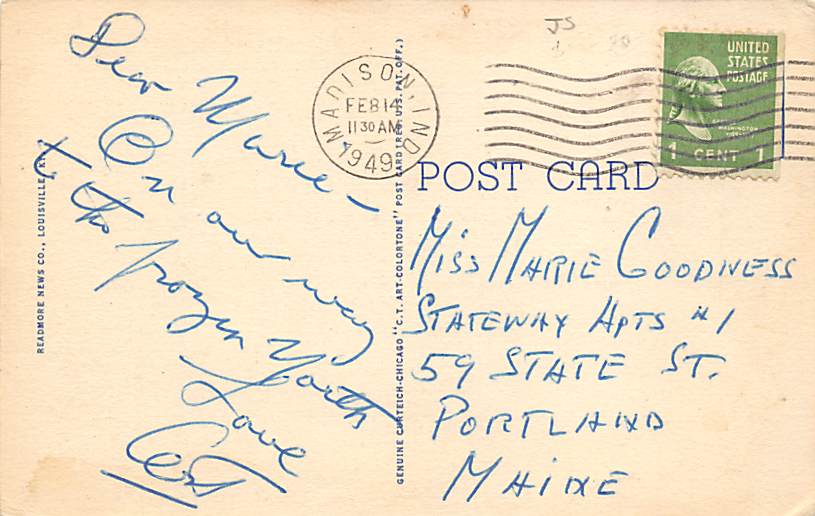 Dear Marie -
On our way
to the frozen North
Love
JS
MADISON, IND.
FEB 14
11 30 AM
1949
UNITED
STATES
POSTAGE
WASHINGTON
1 CENT 1
POST CARD
Miss Marie Goodness
Stateway Apts #1
59 State St.
Portland
Maine
READMORE NEWS CO., LOUISVILLE, KY.
GENUINE CURTEICH-CHICAGO "C.T. ART-COLORTONE" POST CARD (REG. U.S. PAT. OFF.)